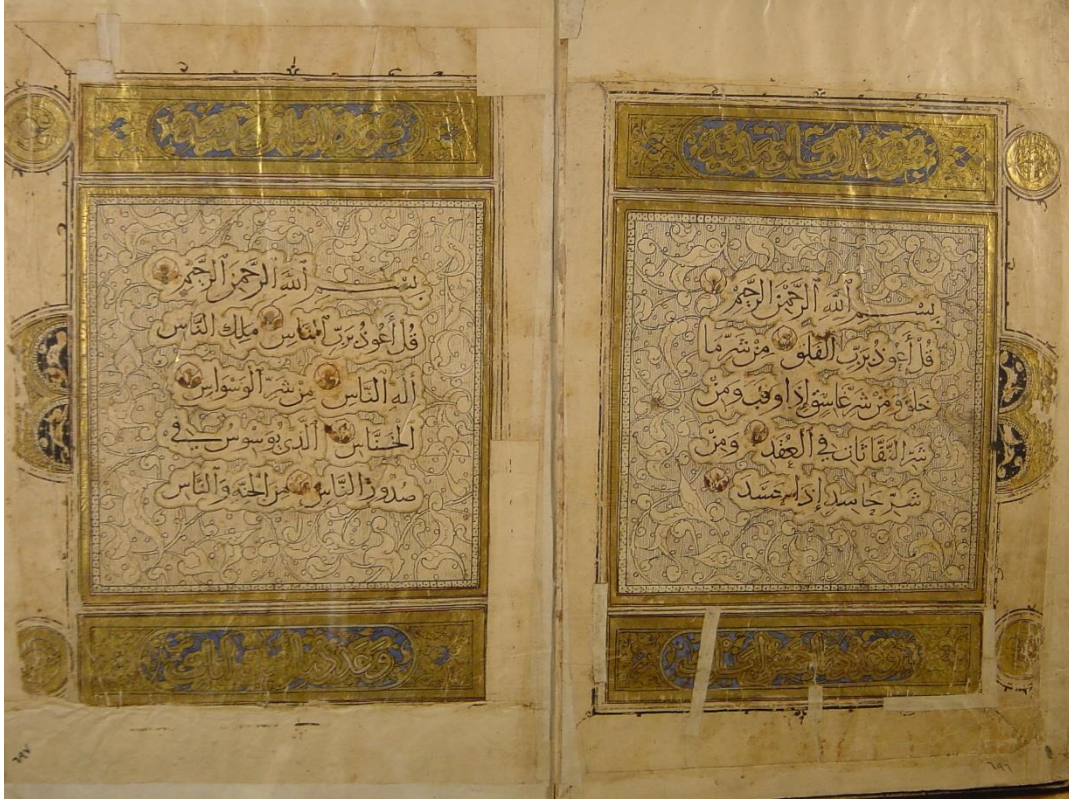 سورة الفلق مدنية
بسم الله الرحمن الرحيم
قُلْ أَعُوذُ بِرَبِّ الفَلَقِ مِنْ شَرِّ مَا
خلق ومن شر غاسق إذا وقب ومن
شر النفاثات في العقد ومن
شر حاسد إذا حسد
٦٩٦
سورة الناس
بسم الله الرحمن الرحيم
قل أعوذ برب الناس ملك الناس
اله الناس من شر الوسواس
الخناس الذي يوسوس في
صدور الناس من الجنة والناس
وعدد
٦٩٧